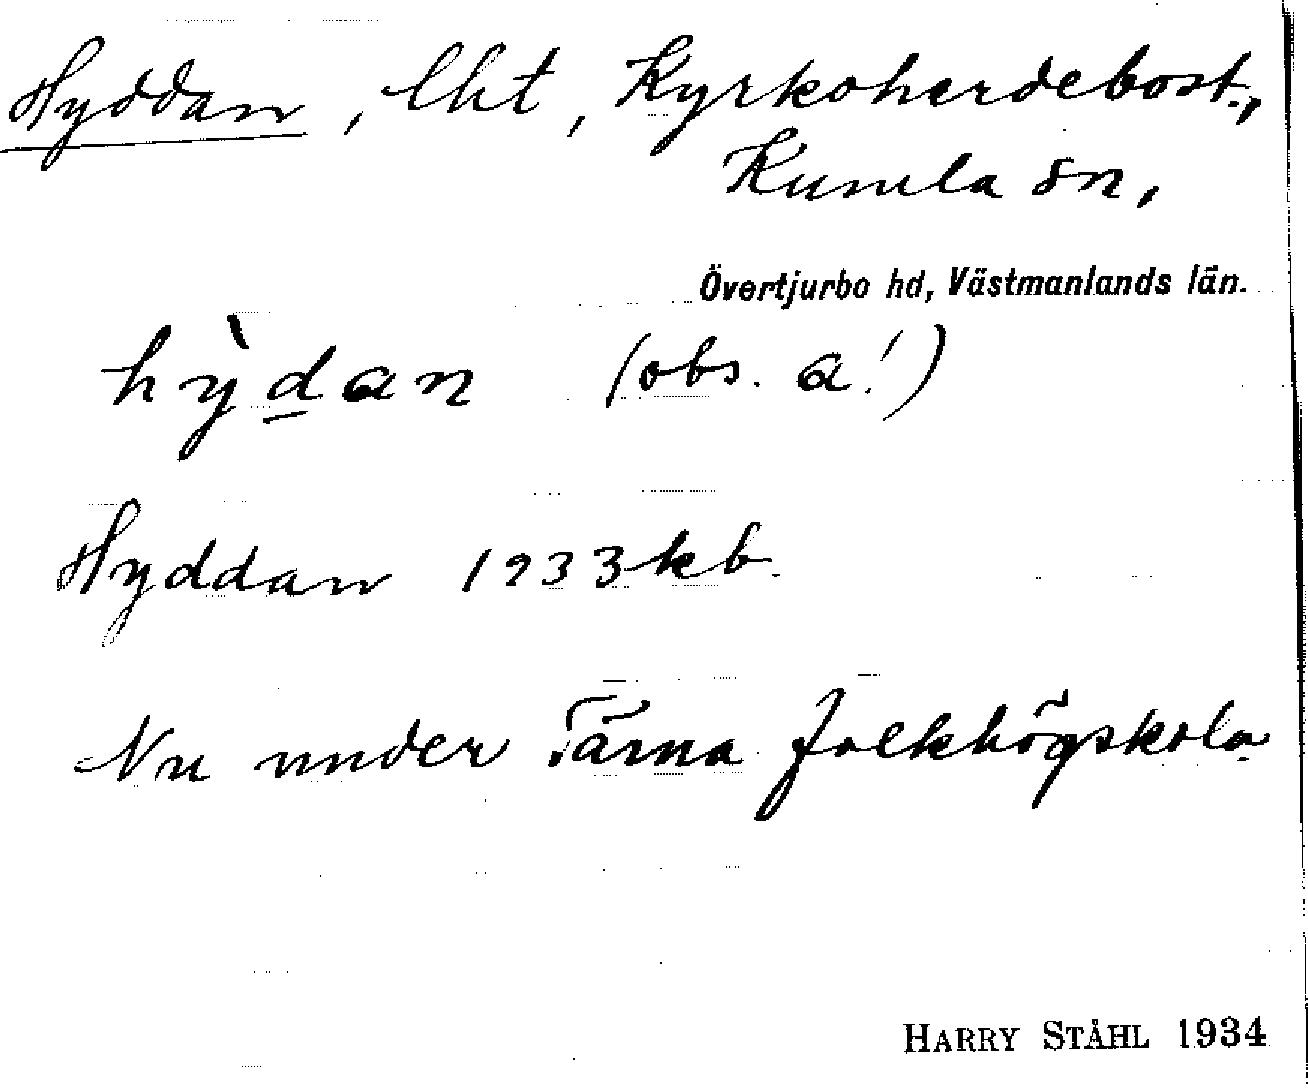 Hyddan, lht, Kyrkoherdebost.,
Kumla sn,
Övertjurbo hd, Västmanlands län.
hỳd̲an (obs. a!)
Hyddan 1933 kb.
Nu under Tärna folkhögskola
HARRY STÅHL 1934